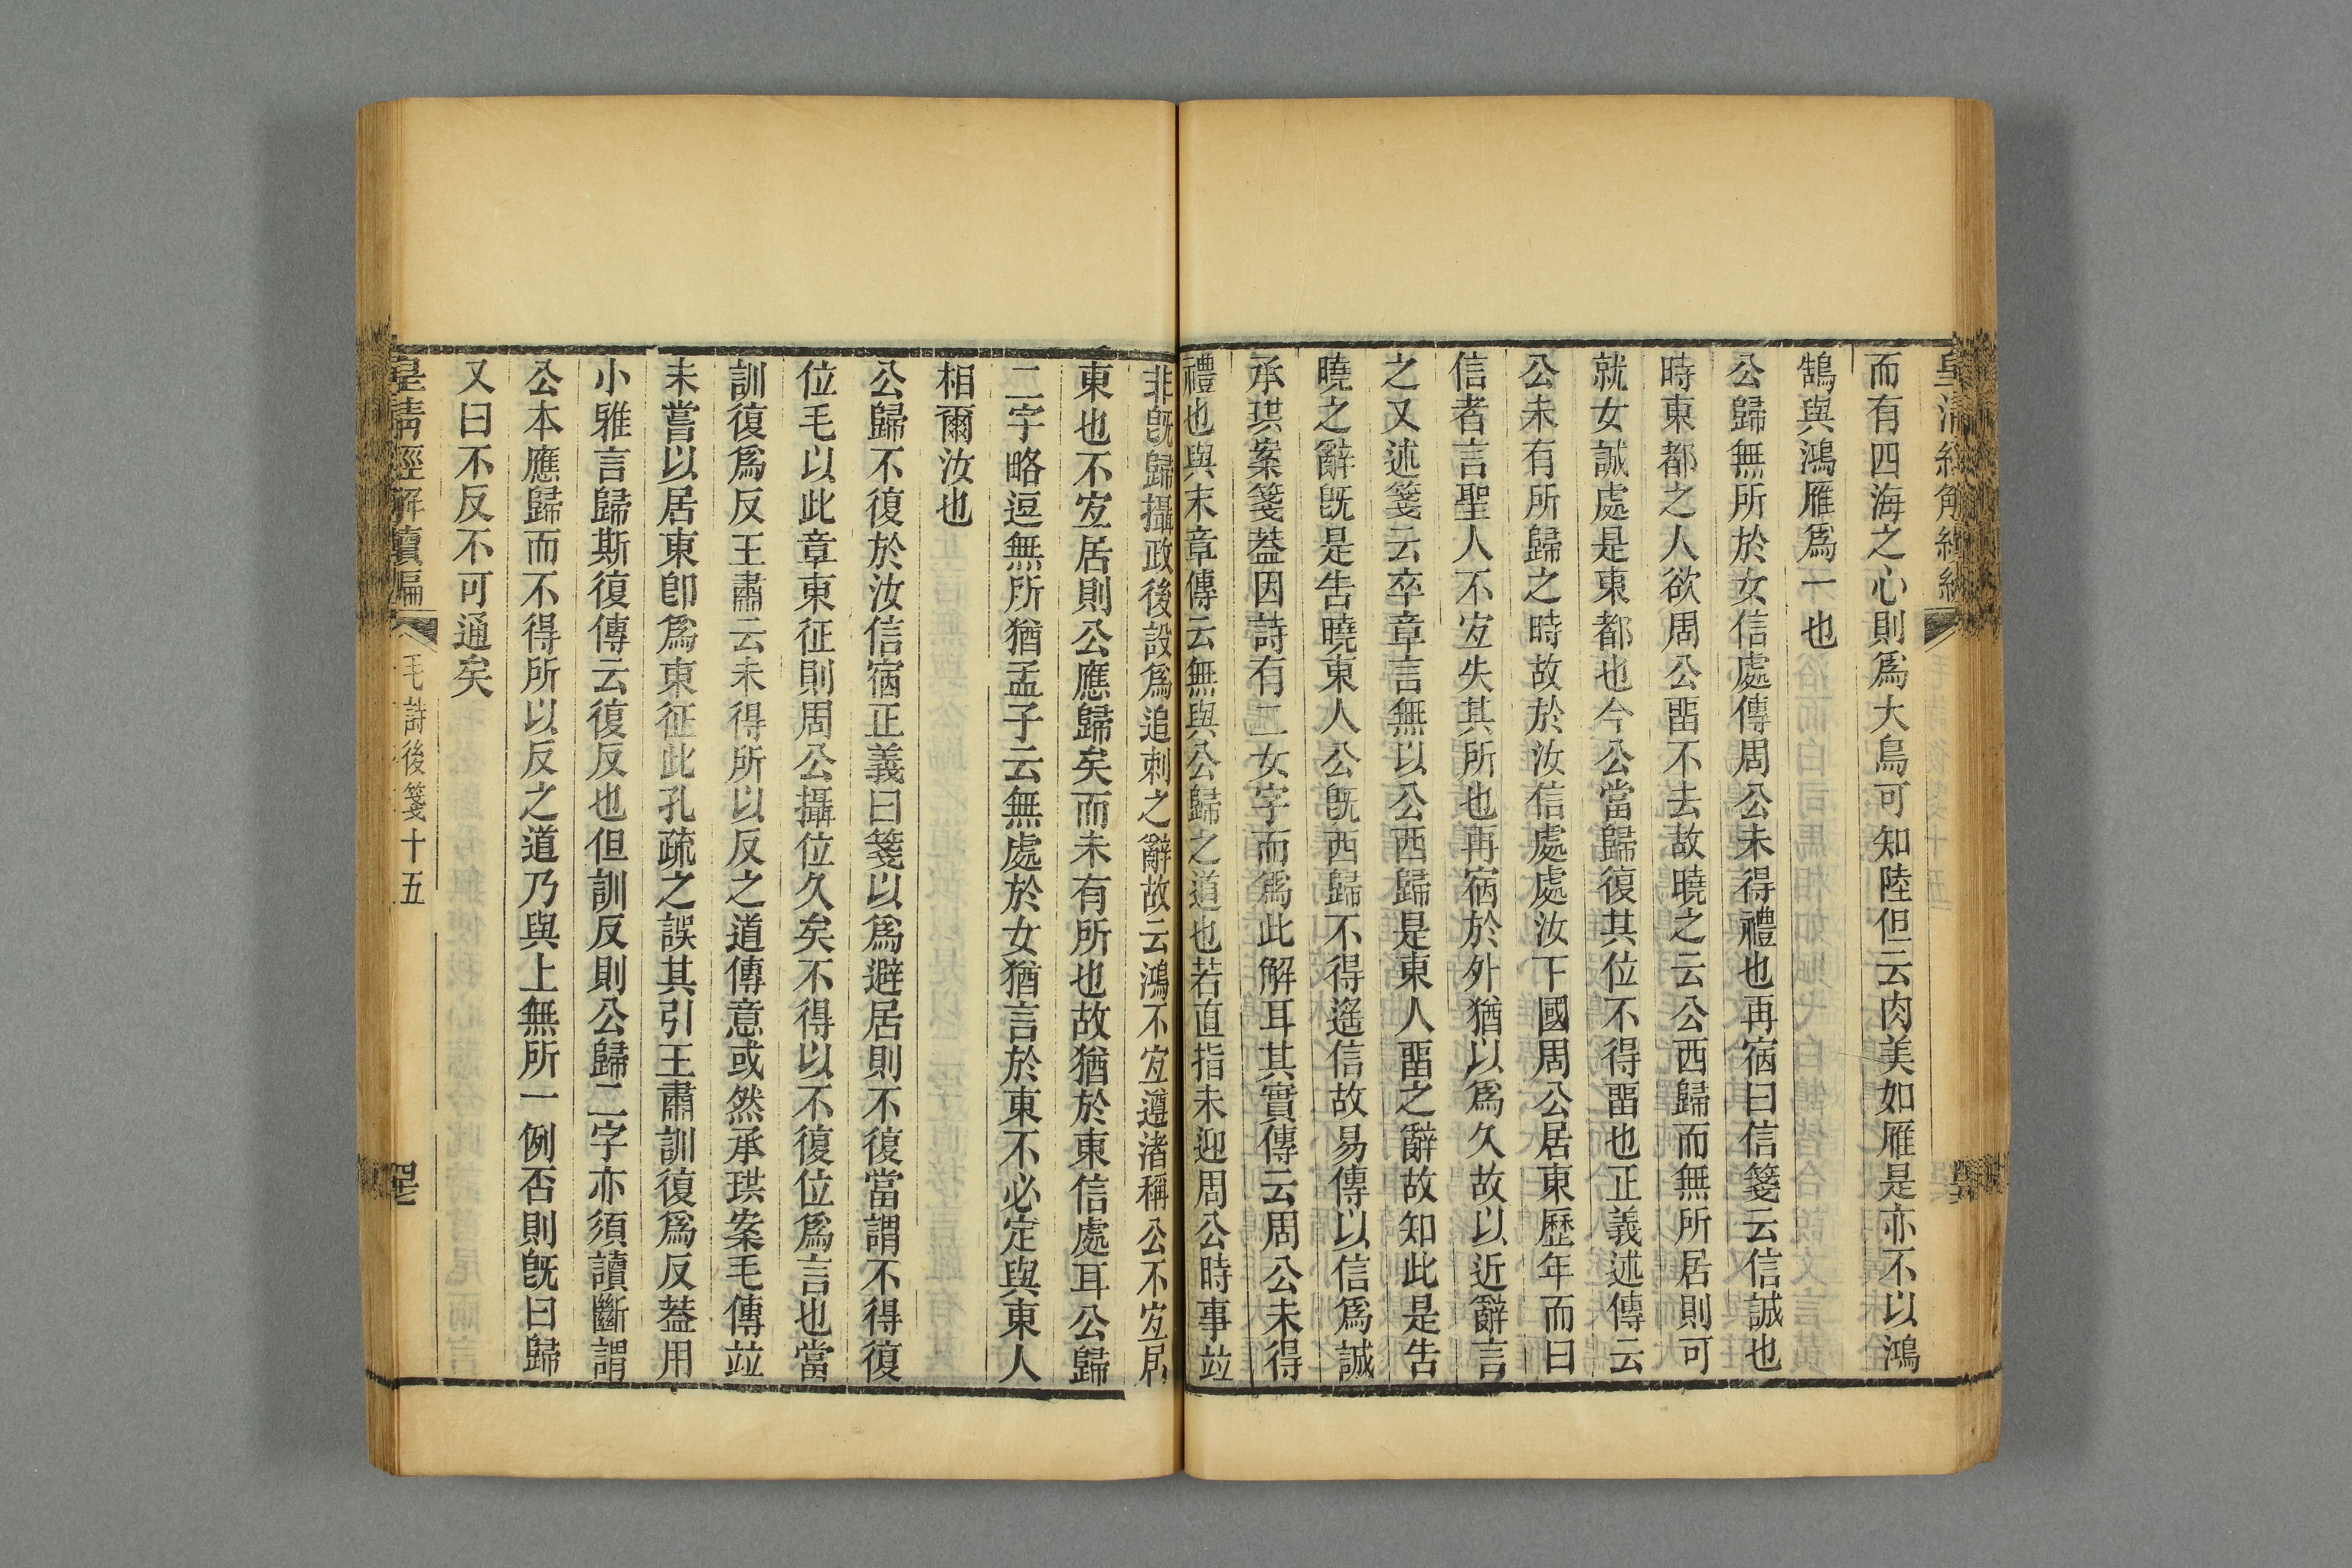 而有四海之心則爲大鳥可知陸但云肉美如雁是亦不以鴻
鵠與鴻雁爲一也
公歸無所於女信處傳周公未得禮也再宿曰信箋云信誠也
時東都之人欲周公畱不去故曉之云公西歸而無所居則可
就女誠處是東都也今公當歸復其位不得畱也正義述傳云
公未有所歸之時故於汝信處處汝下國周公居東歷年而曰
信者言聖人不宐失其所也再宿於外猶以爲久故以近辭言
之又述箋云卒章言無以公西歸是東人畱之辭故知此是告
曉之辭旣是告曉東人公旣西歸不得遙信故易傳以信爲誠
承珙案箋葢因詩有二女字而爲此解耳其實傳云周公未得
禮也與末章傳云無與公歸之道也若直指未迎周公時事竝
非旣歸攝政後設爲追刺之辭故云鴻不宐遵渚稱公不宐居
東也不宐居則公應歸矣而未有所也故猶於東信處耳公歸
二字略逗無所猶孟子云無處於女猶言於東不必定與東人
相爾汝也
公歸不復於汝信宿正義曰箋以爲避居則不復當謂不得復
位毛以此章東征則周公攝位久矣不得以不復位爲言也當
訓復爲反王肅云未得所以反之道傳意或然承珙案毛傳竝
未嘗以居東卽爲東征此孔疏之誤其引王肅訓復爲反葢用
小雅言歸斯復傳云復反也但訓反則公歸二字亦須讀斷謂
公本應歸而不得所以反之道乃與上無所一例否則旣曰歸
又曰不反不可通矣
皇清經解續編
毛詩後箋十五